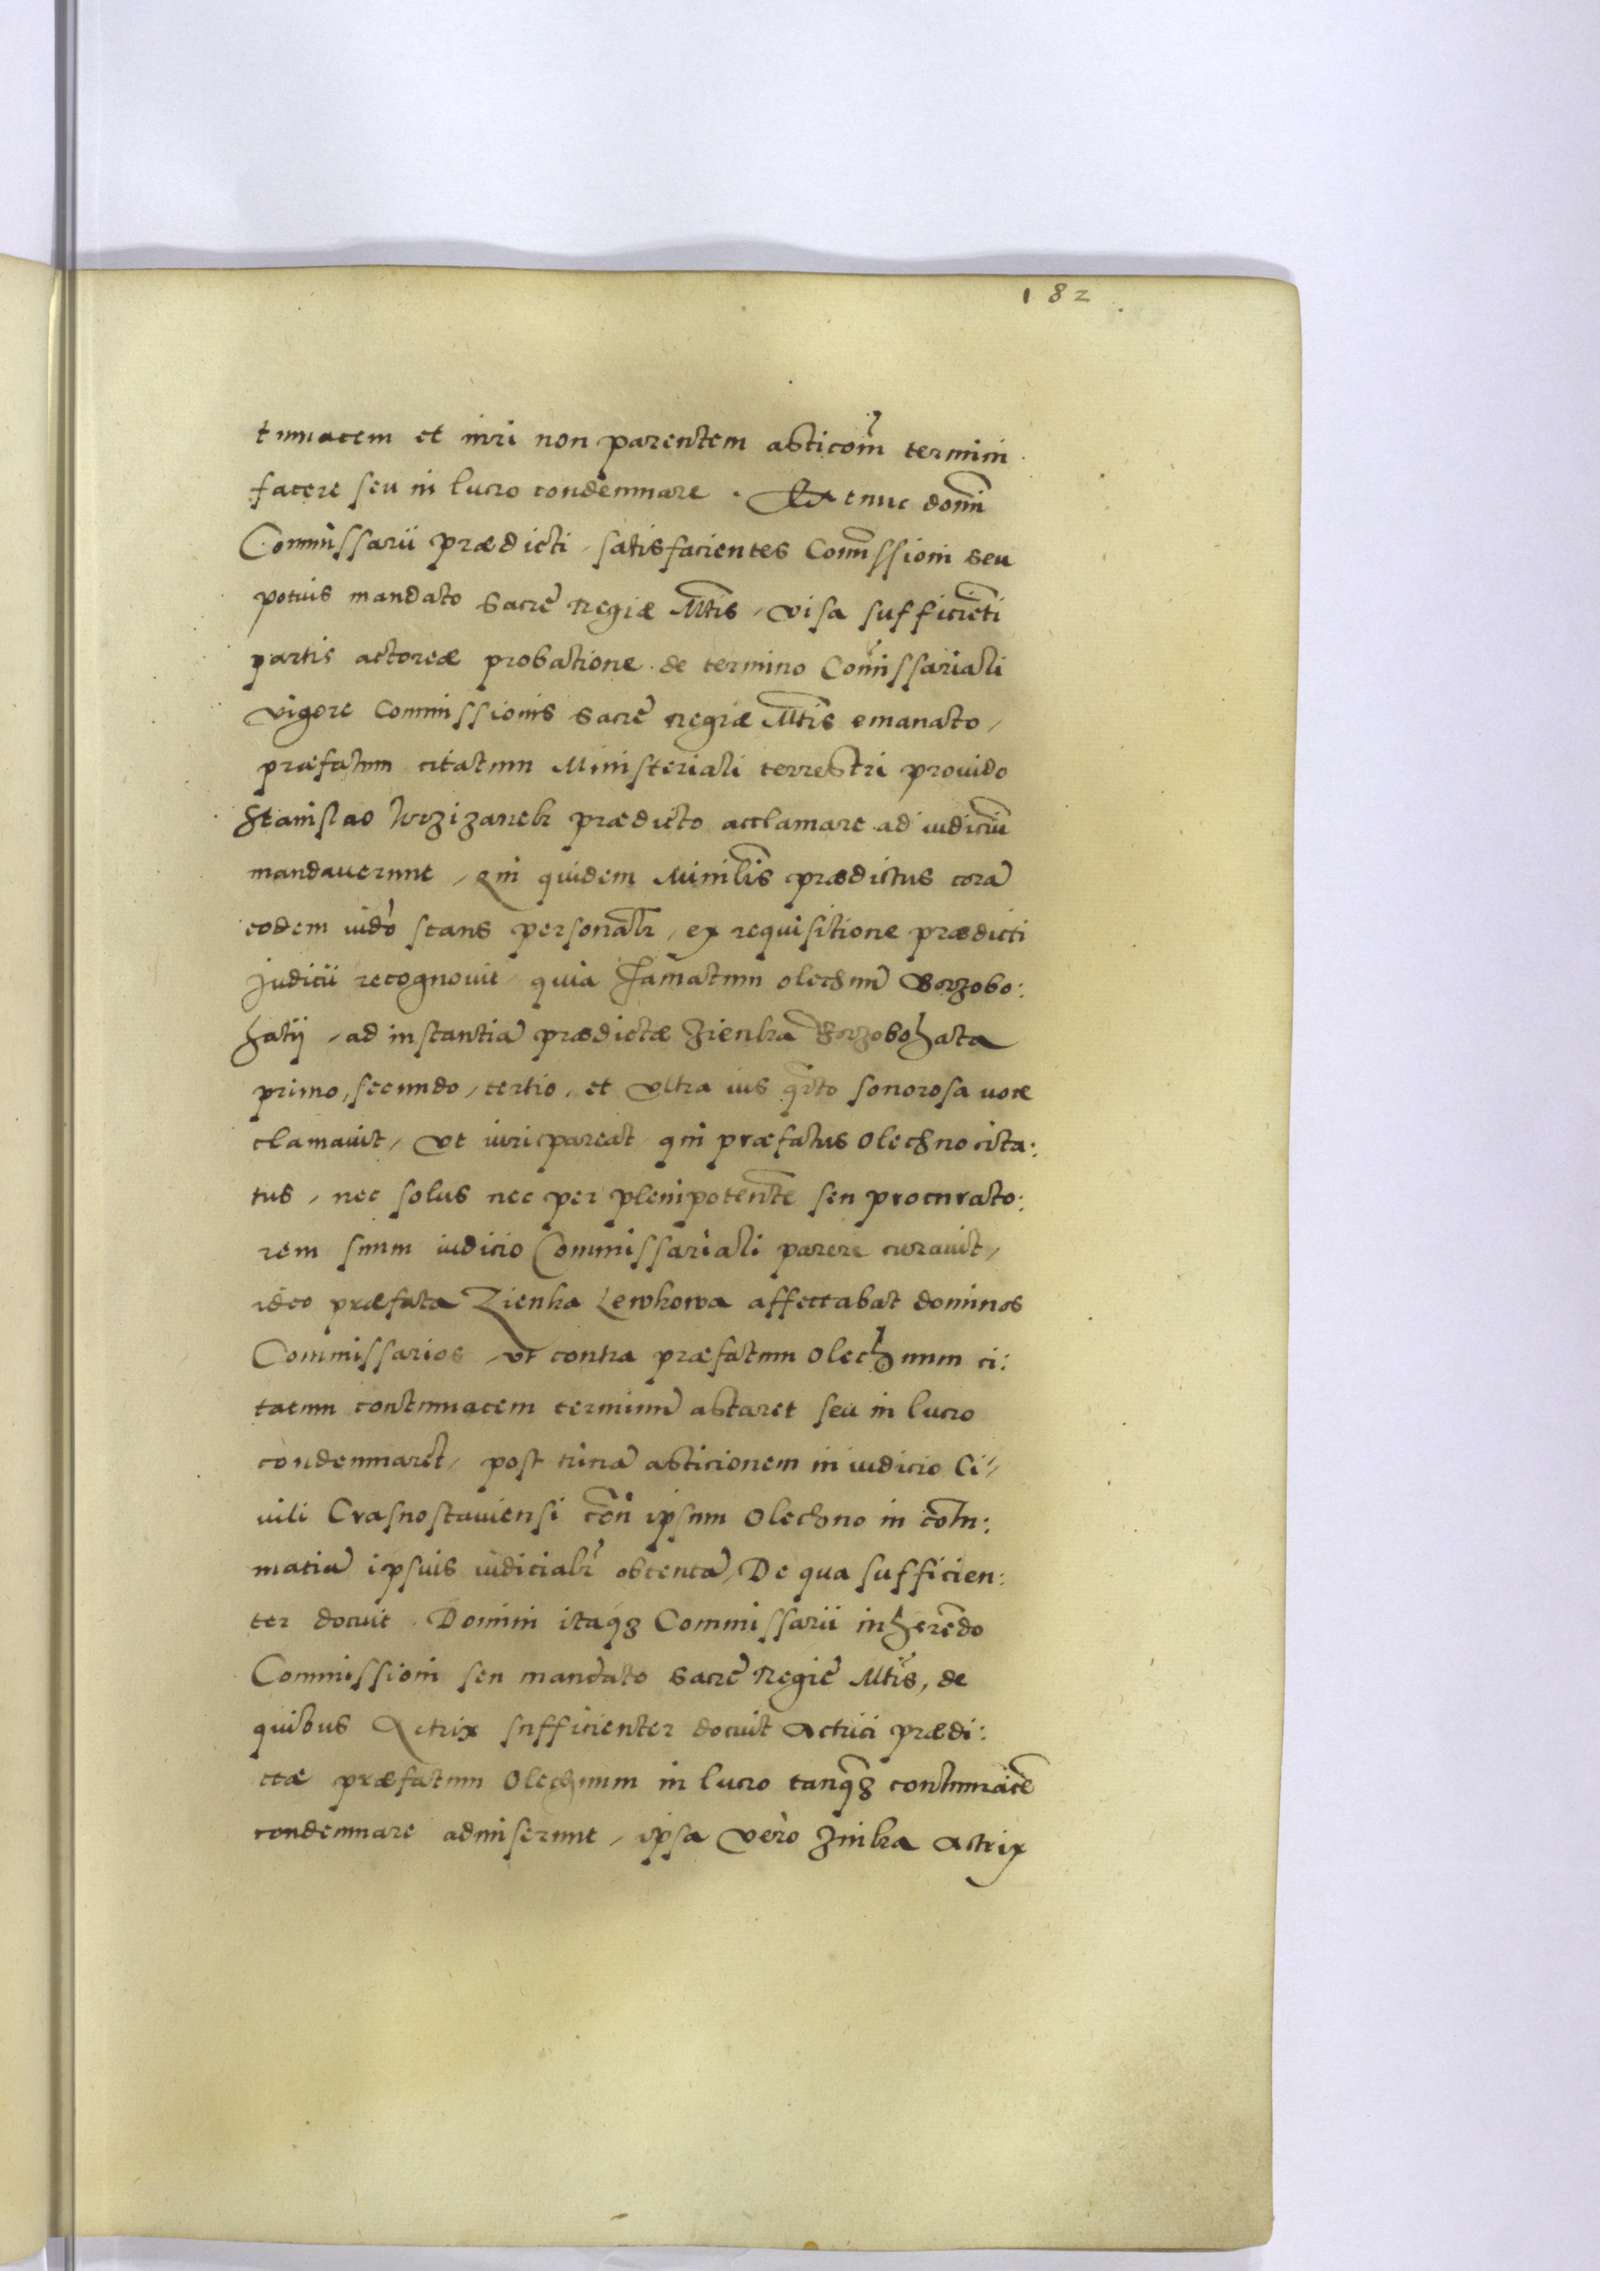 182
tumacem et iuri non parentem asticoñ termini
facere seu in lucro condemnare. Et tunc doñi
Commissarii prædicti, satisfacientes Coñissioni seu
potius mandato Sacrẽ Regiæ Mtis, visa sufficiẽti
partis actoreæ probatione de termino Coñissariali
vigore Commissionis Sacrẽ Regiæ Mtis emanato,
præfatum citatum Ministeriali terrestri prouido
Stanislao prædicto acclamare ad iudiciũ
mandauerunt, qui quidem Minilis prædictus corã
eodem iudõ stans personalr, ex requisitione prædicti
Judicii recognouit, quia famatum Olechnũ Borzobo:
hatij, ad instantiã prædictæ Zienka Borzobohata
primo, secundo, tertio, et vltra ius qrto sonorosa uoce
clamauit, vt iuri pareat, qui præfatus Olechno cita:
tus, nec solus nec per plenipotentẽ seu procurato:
rem suum iudicio Commissariali parere curauit,
ideo præfata Zienka Lewkowa affectabat dominos
Commissarios, vt contra præfatum Olechnum ci:
tatum contumacem terminũ astaret seu in lucro
condemnaret, post trinã astitionem in iudicio Ci,,
uili Crasnostauiensi coñ ipsum Olechno in cõtu:
matiã ipsius iudicialr obtentã, De qua sufficien:
ter docuit. Domini itaqз Commissarii inherẽdo
Commissioni seu mandato Sacrẽ Regiẽ Mtis, de
quibus Actrix sufficienter docuit Actrici prædi:
ctæ præfatum Olechnum in lucro tanqз contumacẽ
condemnare admiserunt, ipsa verò Zinka Actrix